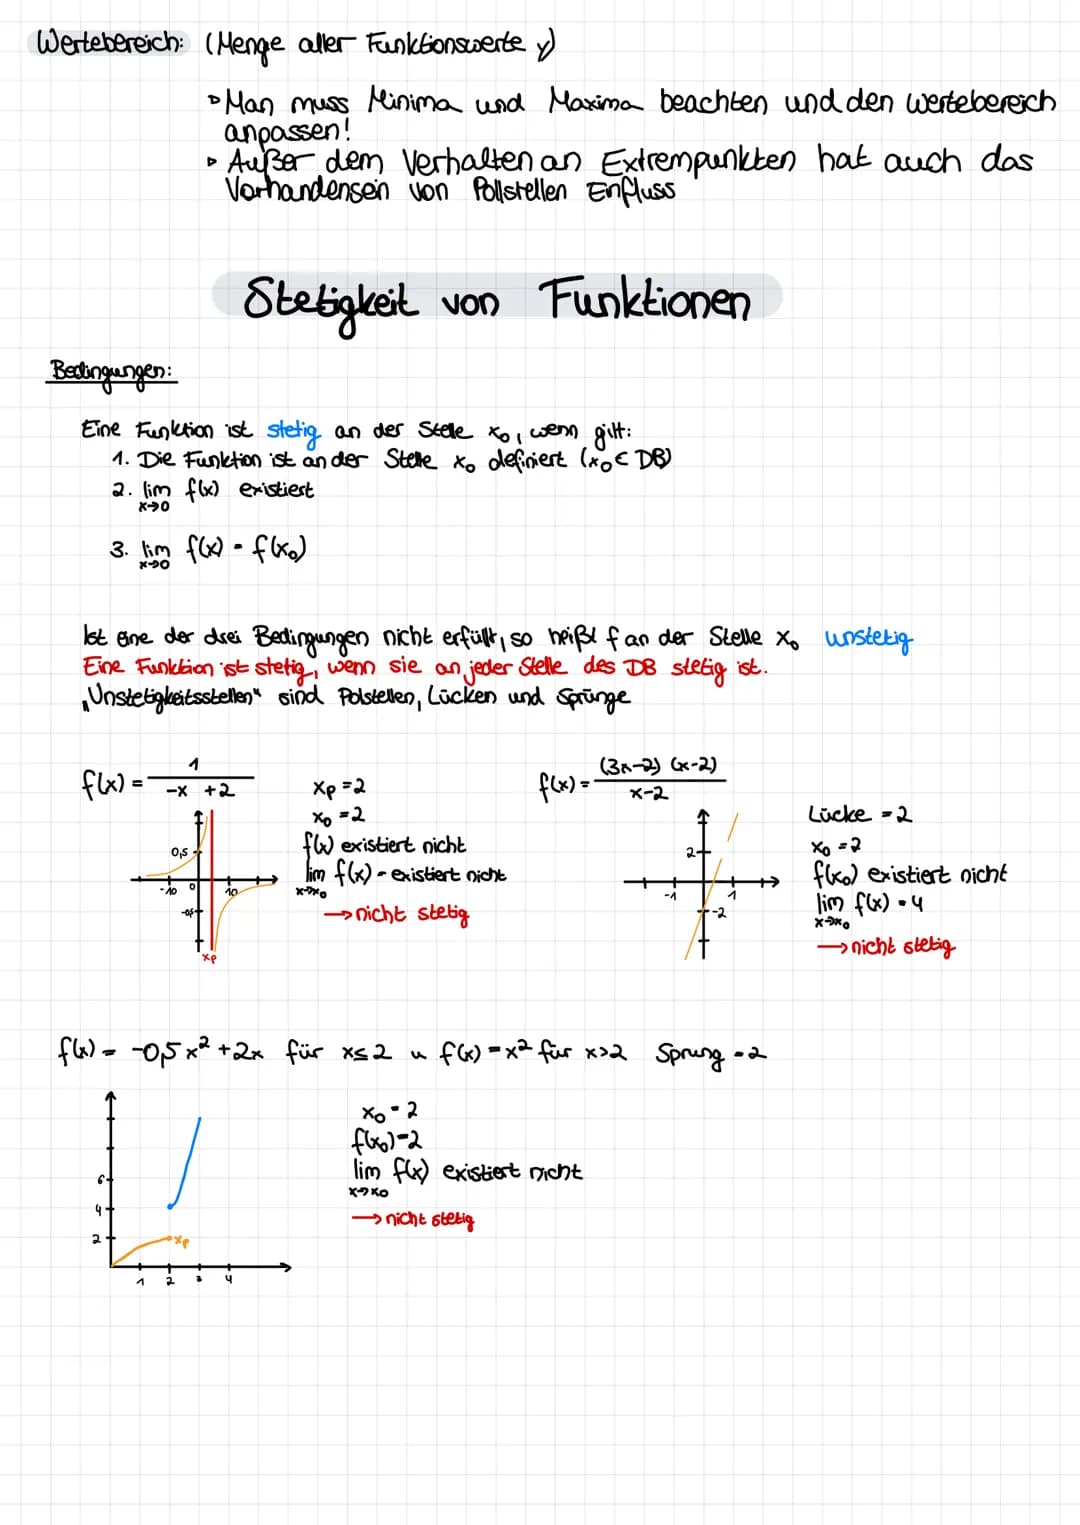 Wertebereich: (Menge aller Funktionswerte y)
▹Man muss Minima und Maxima beachten und den Wertebereich
anpassen!
▹Außer dem Verhalten an Extrempunkten hat auch das
Vorhandensein von Pollstellen Einfluss
Stetigkeit von Funktionen
Bedingungen:
Eine Funktion ist stetig an der Stelle x₀, wenn gilt:
1. Die Funktion ist an der Stelle x₀ definiert (x₀ ∈ DB)
2. lim f(x) existiert
x→0
3. lim f(x) = f(x₀)
x→0
Ist eine der drei Bedingungen nicht erfüllt, so heißt f an der Stelle x₀ unstetig
Eine Funktion ist stetig, wenn sie an jeder Stelle des DB stetig ist.
„Unstetigkeitsstellen“ sind Polstellen, Lücken und Sprünge
f(x) = 1 / (-x +2)
xp = 2
x₀ = 2
f(x) existiert nicht
lim f(x) = existiert nicht
x→x₀
→ nicht stetig
0,5
-10 0 10
-0,5
xp
f(x) = (3x-2) (x-2) / (x-2)
Lücke = 2
x₀ = 2
f(x₀) existiert nicht
lim f(x) = 4
x→x₀
→ nicht stetig
2
-1 1
-2
f(x) = -0,5x² +2x für x≤2 u f(x) = x² für x>2 Sprung = 2
x₀ = 2
f(x₀) = 2
lim f(x) existiert nicht
x→x₀
→ nicht stetig
6
4
2
xp
1 2 3 4